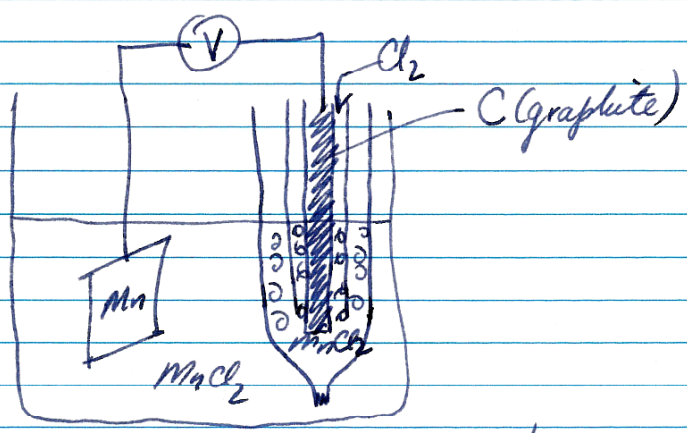 V
Cl2
C (graphite)
Mn
MnCl2
MnCl2